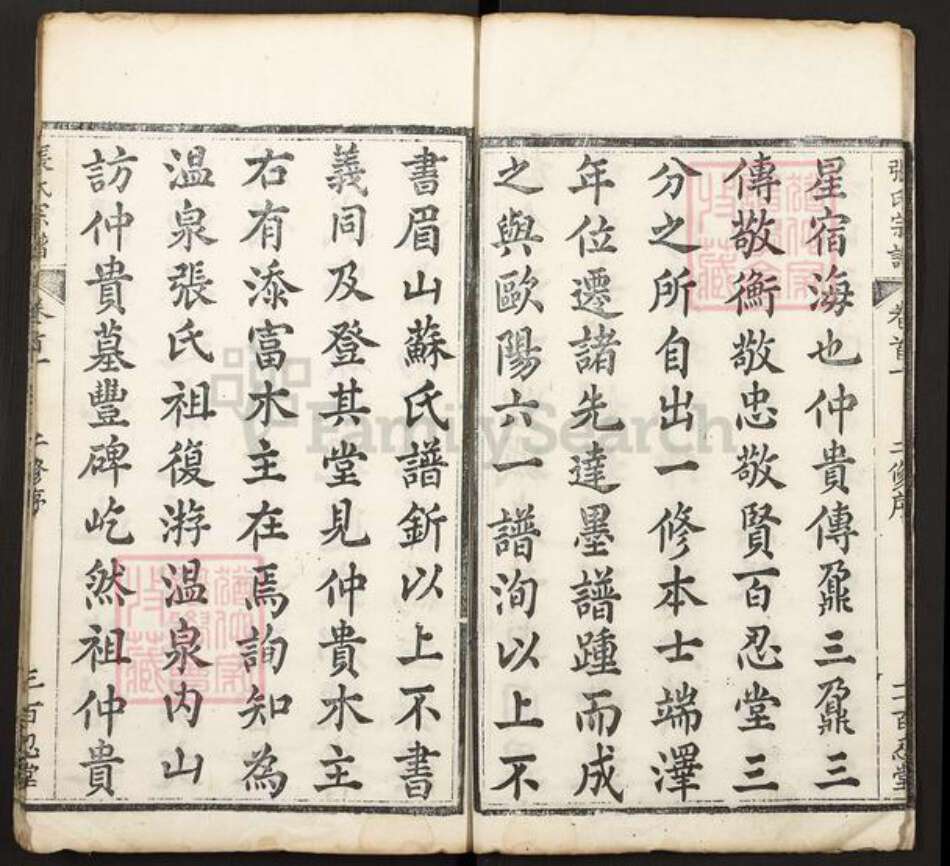 張氏宗譜 卷首一 二修序 二百忍堂
星宿海也仲貴傳鼐三鼐三
傳敬衡敬忠敬賢百忍堂三
分之所自出一修本士端澤
年位遷諸先達墨譜踵而成
之與歐陽六一譜洵以上不
書眉山蘇氏譜釿以上不書
義同及登其堂見仲貴木主
右有添富木主在焉詢知為
溫泉張氏祖復游溫泉内山
訪仲貴墓豐碑屹然祖仲貴
張氏宗譜 卷首一 二修序 三百忍堂
FamilySearch